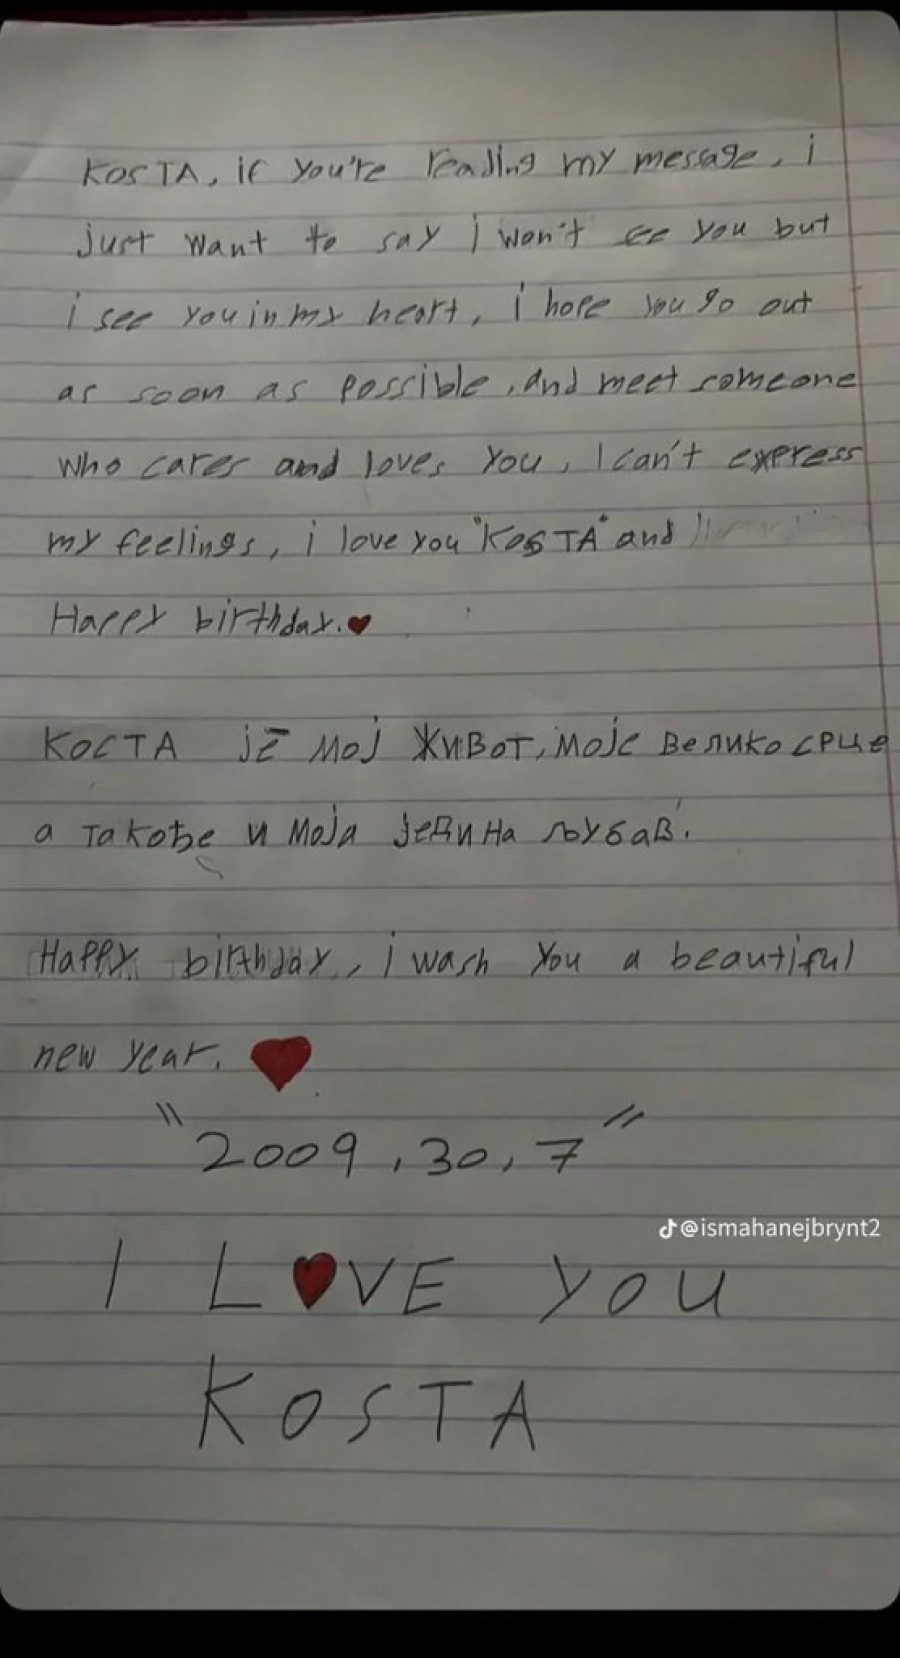 KOSTA, if you're reading my message, i
just want to say i won't see you but
i see you in my heart, i hope you go out
as soon as possible, and meet someone
who cares and loves you, I can't express
my feelings, i love you "KOSTA" and
Happy birthday.♥
КОСТА је мој живот, моје велико срце
а такође и моја једина љубав.
Happy birthday, i wash you a beautiful
new year. ♥
"2009,30,7"
@ismahanejbrynt2
I L♥VE YOU
KOSTA